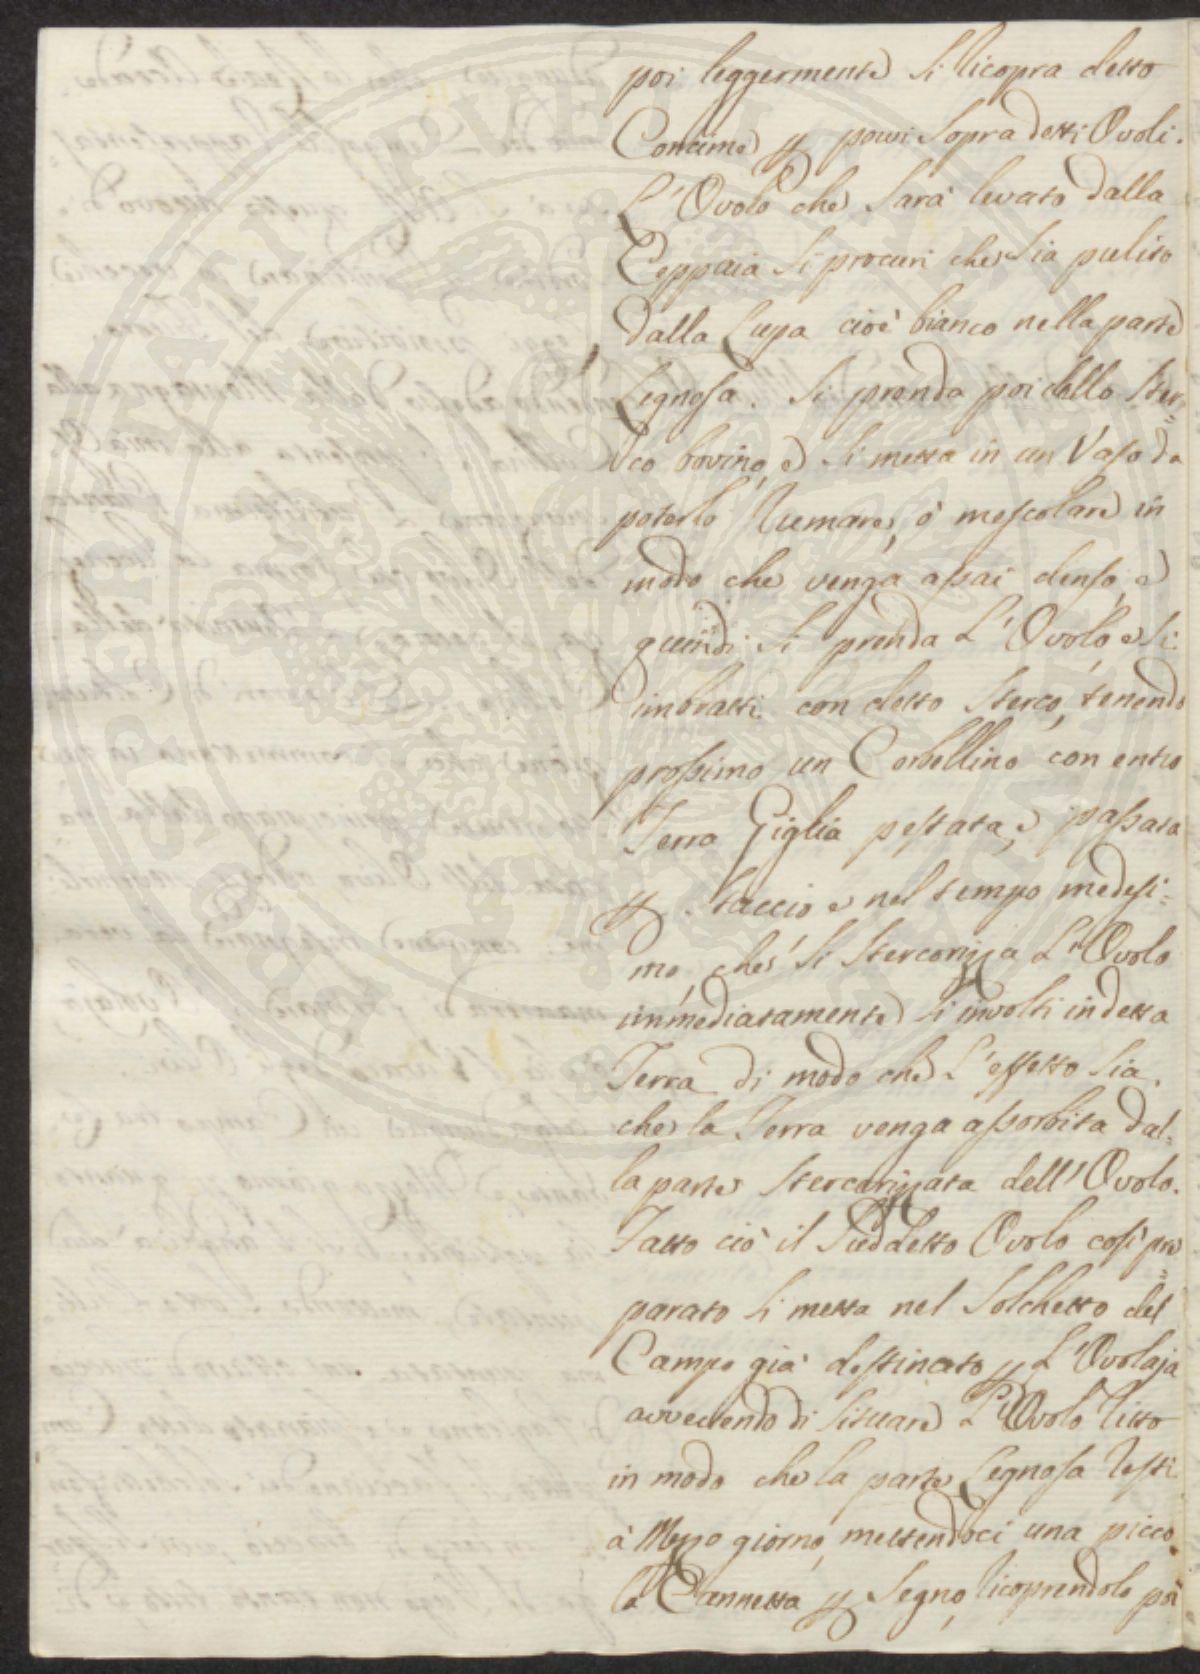 poi leggermente si ricopra detto
Concime p porvi sopra detti Ovoli.
L'Ovolo che sarà levato dalla
Ceppaia si procuri che sia pulito
dalla Lupa cioè bianco nella parte
Legnosa. Si prenda poi dello ster=
co bovino, e si metta in un Vaso da
poterlo rumare, ò mescolare in
modo che venga assai denso, e
quindi si prenda L'Ovolo, e si
imbratti con detto sterco, tenendo
prossimo un Corbellino con entro
Terra Giglia pestata, e passata
p staccio e nel tempo medesi=
mo, che si stercorizza L'Ovolo
immediatamente si involti in detta
Terra di modo che L'effetto sia,
che la Terra venga assorbita dal=
la parte stercorizzata dell'Ovolo.
Fatto ciò il suddetto Ovolo così pre=
parato si metta nel solchetto del
Campo già destinato p L'Ovolaja
avvertendo di situare L'Ovolo ritto
in modo che la parte Legnosa resti
à Mezzo giorno, mettendoci una picco=
la Cannetta p segno, ricoprendolo poi
PROSPERITATI PUBLICAE